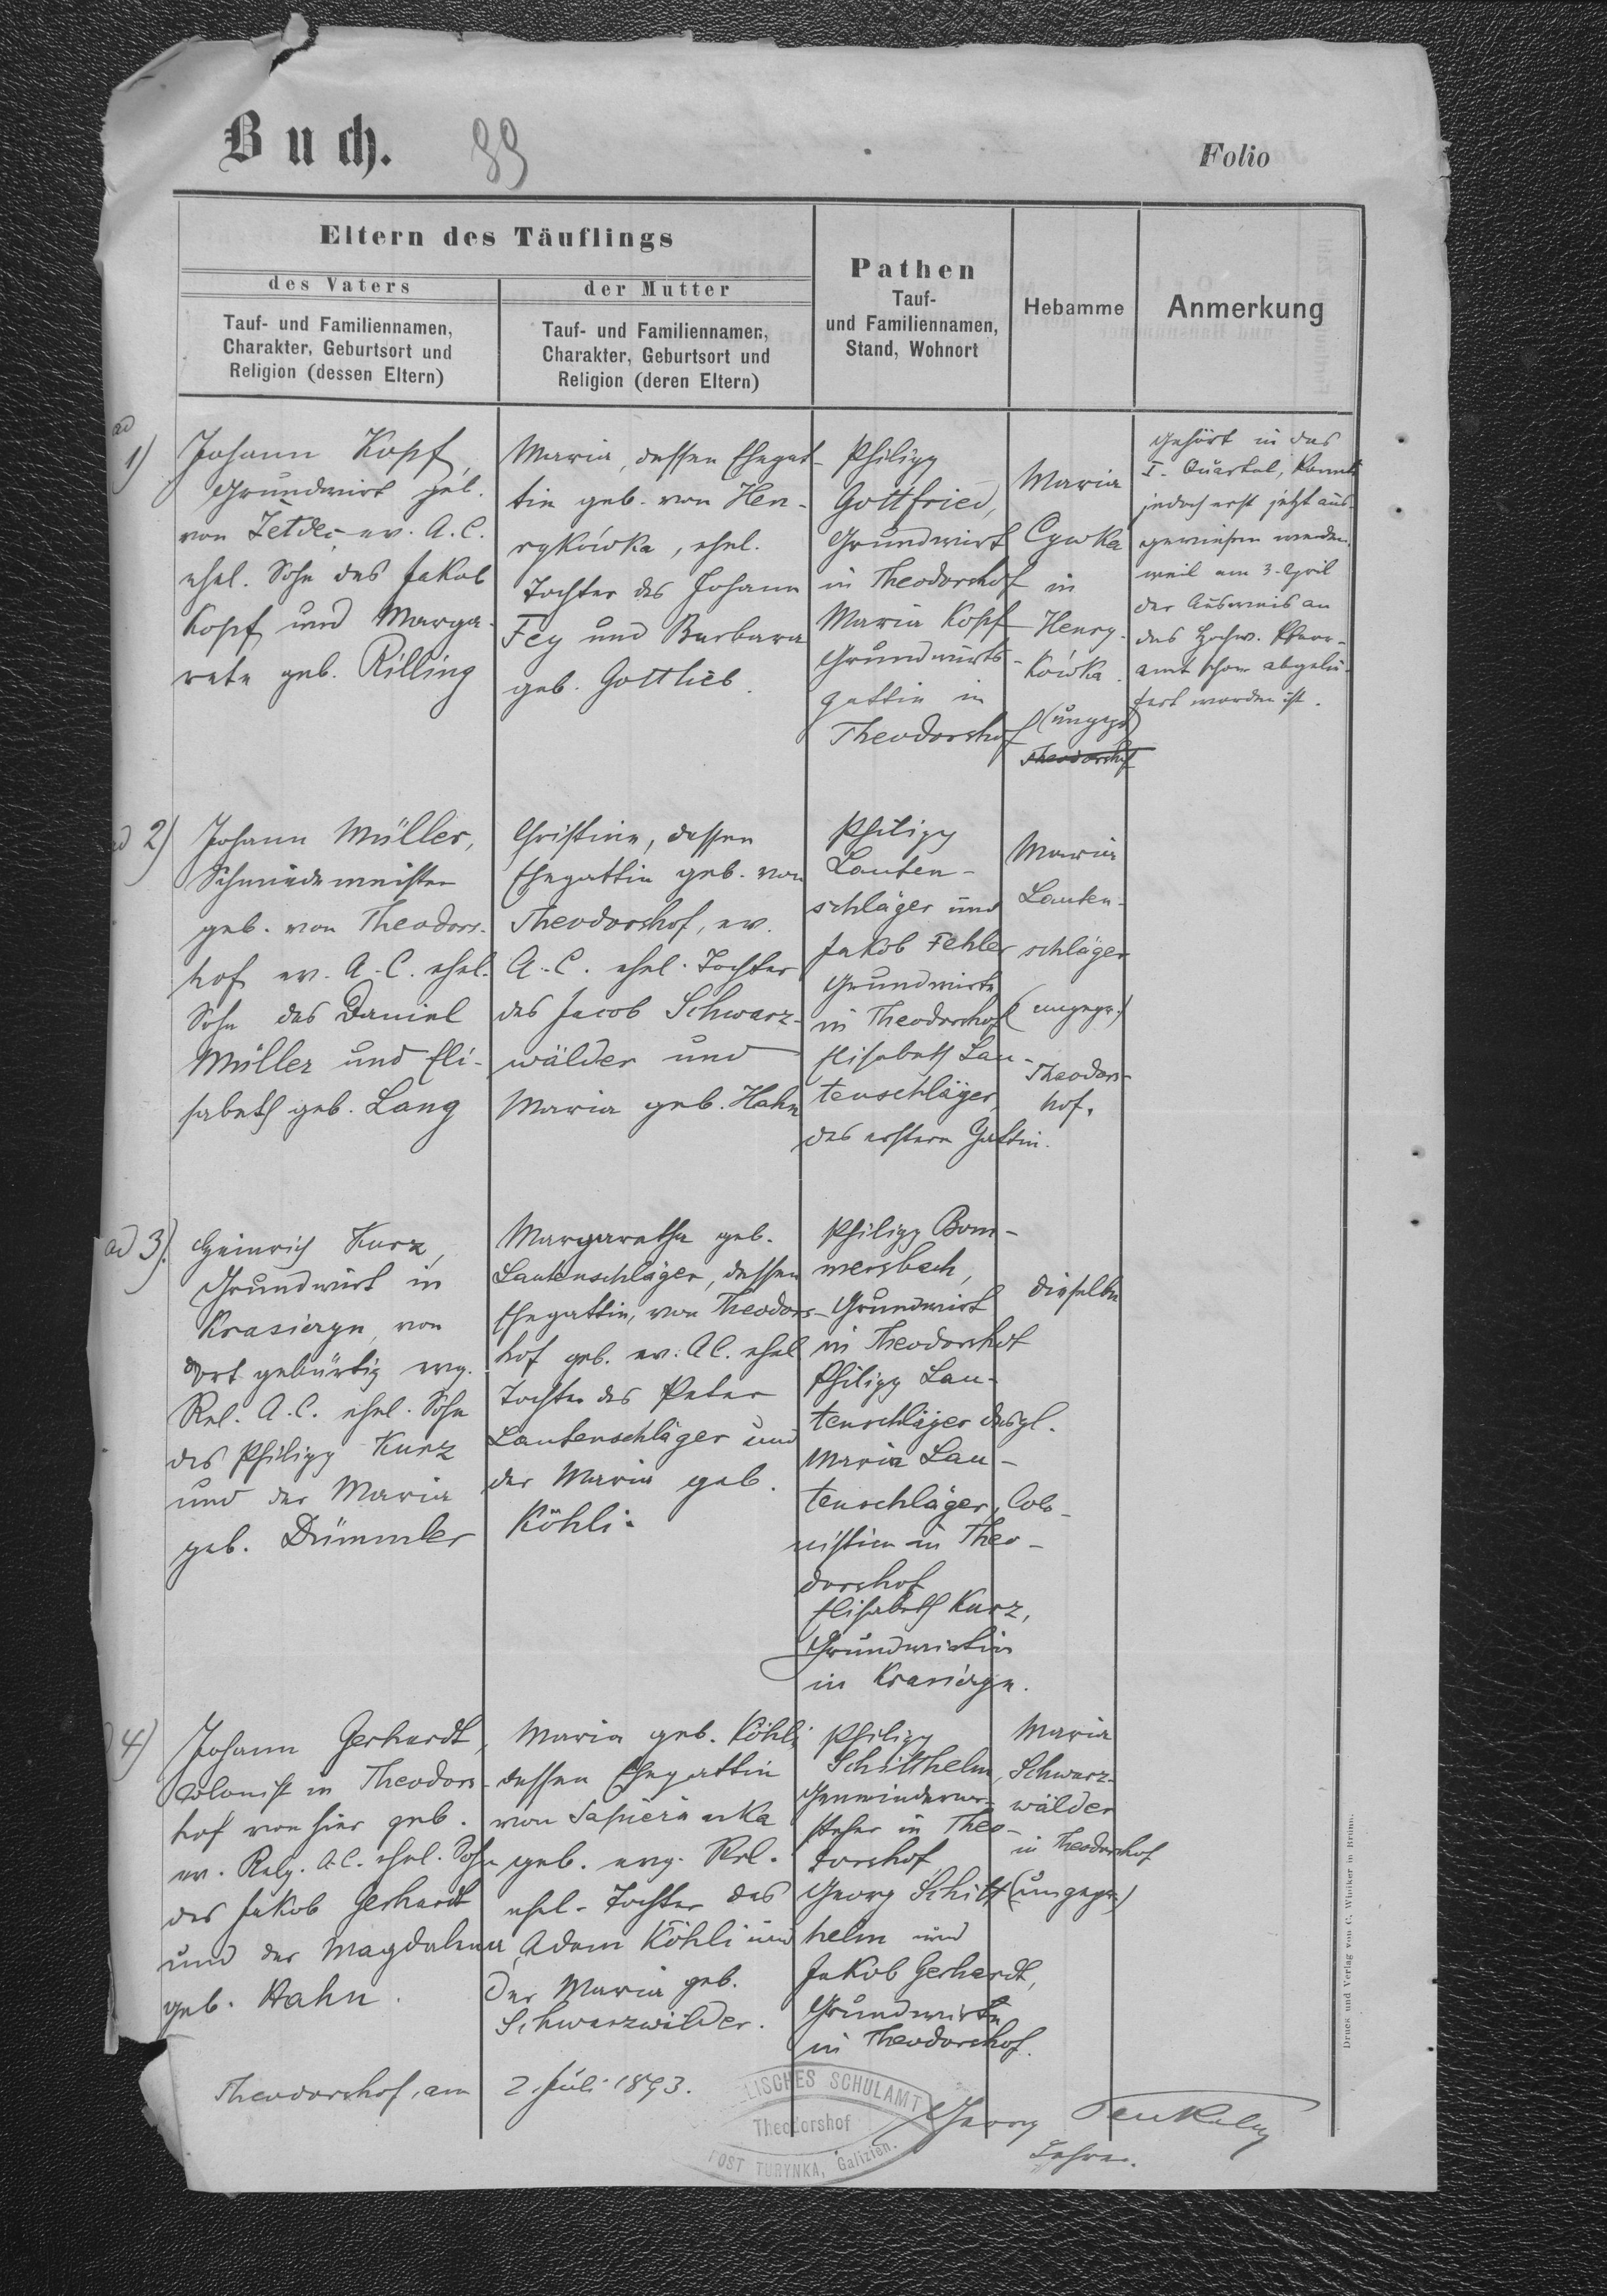 Buch.
99
Folio
Eltern des Täuflings
des Vaters
Tauf- und Familiennamen,
Charakter, Geburtsort und
Religion (dessen Eltern)
der Mutter
Tauf- und Familiennamen,
Charakter, Geburtsort und
Religion (deren Eltern)
Pathen
Tauf-
und Familiennamen,
Stand, Wohnort
Hebamme
Anmerkung
ad
1)
Johann Kopf,
Grundwirt geb.
von ev. A. C.
ehel. Sohn des Jakob
Kopf und Marga-
rete geb. Rilling
Maria, dessen Ehegat-
tin geb. von Hen-
rykówka, ehel.
Tochter des Johann
Fey und Barbara
geb. Gottlieb.
Philipp
Gottfried,
Grundwirt
in Theodorshof
Maria Kopf
Grundwirts-
gattin in
Theodorshof
Maria
Cywka
in
Henry-
kówka.
(ungepr.)
Theodorshof
Gehört in das
I. Quartal, konnte
jedoch erst jetzt aus-
gewiesen werden,
weil am 3. April
der Ausweis an
das Hochw. Pfarr-
amt schon abgelie-
fert worden ist.
ad 2)
Johann Müller,
Schmiedemeister
geb. von Theodors-
hof ev. A. C. ehel.
Sohn des Daniel
Müller und Eli-
sabeth geb. Lang
Christine, dessen
Ehegattin geb. von
Theodorshof, ev.
A. C. ehel. Tochter
des Jacob Schwarz-
wälder und
Maria geb. Hahn
Philipp
Lauten-
schläger und
Jakob Fehler
Grundwirte
in Theodorshof
Elisabeth Lau-
tenschläger,
des erstern Gattin.
Maria
Lauten-
schläger
(ungepr.)
Theodors-
hof.
ad 3).
Heinrich Kurz,
Grundwirt in
Krasiczyn, von
dort gebürtig evg.
Rel. A. C. ehel. Sohn
des Philipp Kurz
und der Maria
geb. Dümmler
Margaretha geb.
Lautenschläger, dessen
Ehegattin, von Theodors-
hof geb. ev. A C. ehel
Tochter des Peter
Lautenschläger und
der Maria geb.
Köhli.
Philipp Bom-
mersbach,
Grundwirt
in Theodorshof
Philipp Lau-
tenschläger desgl.
Maria Lau-
tenschläger, Colo-
nistin in Theo-
dorshof
Elisabeth Kurz,
Grundwirtin
in Krasiczyn.
dieselbe
4)
Johann Gerhardt,
Colonist in Theodors-
hof von hier geb.
ev. Relg. A. C. ehel. Sohn
des Jakob Gerhardt
und der Magdalena
geb. Hahn.
Maria geb. Köhli
dessen Ehegattin
von Sapieżanka
geb. evg. Rel.
ehel. Tochter des
Adam Köhli und
der Maria geb.
Schwarzwälder.
Philipp
Schitthelm,
Gemeindevor-
steher in Theo-
dorshof
Georg Schitt
helm und
Jakob Gerhardt,
Grundwirte
in Theodorshof.
Maria
Schwarz-
wälder
in Theodorshof
(ungepr.)
Theodorshof, am 2. Juli 1893.
LISCHES SCHULAMT
Theodorshof
POST TURYNKA, Galizien.
Georg
Lehrer.
Druck und Verlag von C. Winiker in Brünn.